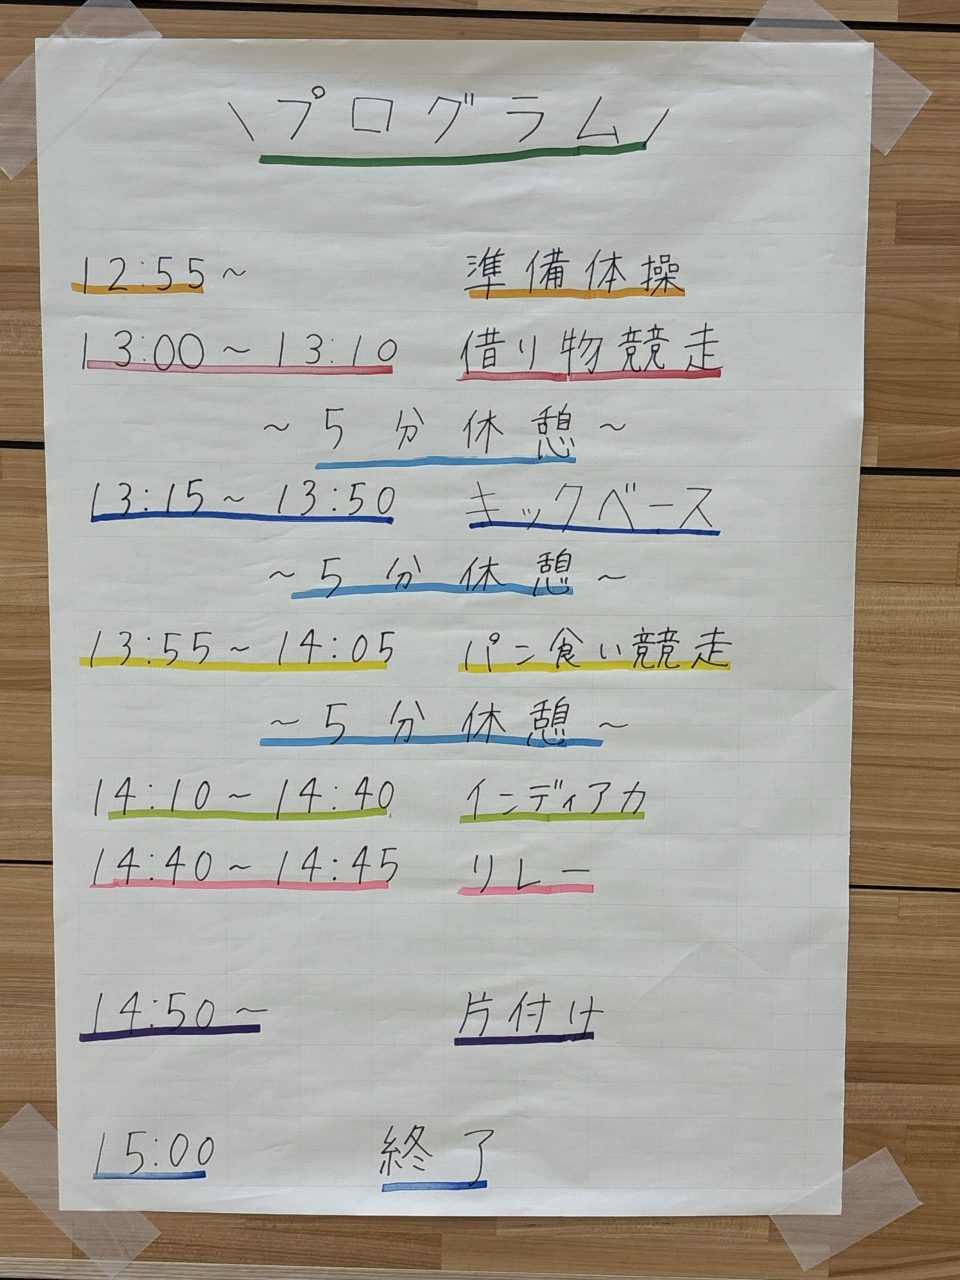 \プログラム/
12:55~ 準備体操
13:00~13:10 借り物競走
~5分休憩~
13:15~13:50 キックベース
~5分休憩~
13:55~14:05 パン食い競走
~5分休憩~
14:10~14:40 インディアカ
14:40~14:45 リレー
14:50~ 片付け
15:00 終了